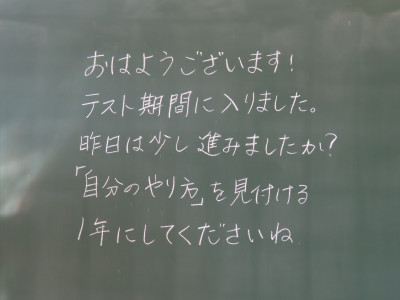 おはようございます!
テスト期間に入りました。
昨日は少し進みましたか?
「自分のやり方」を見付ける
1年にしてくださいね